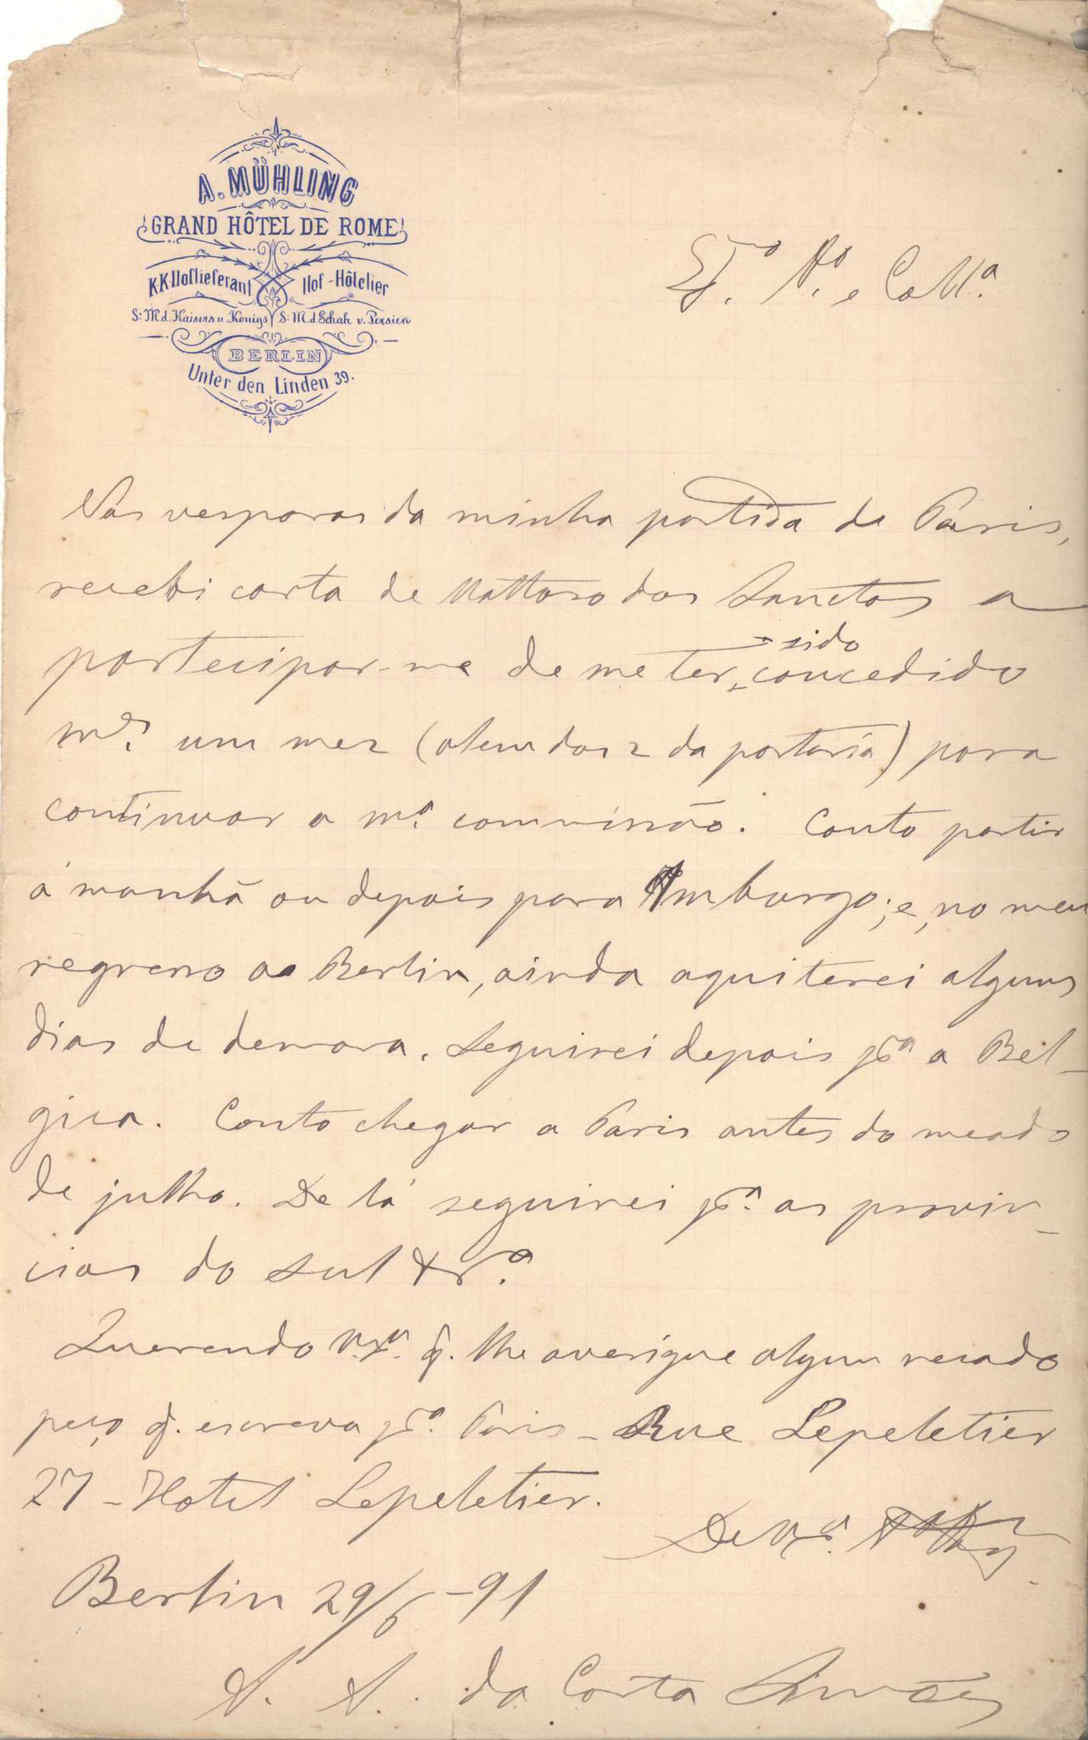 A. MÜHLING
GRAND HÔTEL DE ROME
K K Hoflieferant Hof-Hôtelier
S. M d. Kaisers u. Königs S. M. d. Schah v. Persien
BERLIN
Unter den Linden 39.
Am.o e Coll.a
Nas vesporas da minha partida de Paris,
recebi carta de Mattoso dos Sanctos a
partecipar-me de me ter sido concedido
m.s um mez (alem dos 2 da portaria) para
continuar a m.a commissão. Conto partir
á manhã ou depois para Amburgo; e, no meu
regresso a Berlin, ainda aqui terei alguns
dias de demora. Seguirei depois p.a a Bel-
gica. Conto chegar a Paris antes do meado
de julho. De lá seguirei p.a as provin-
cias do sul
Querendo V. Ex.a q. lhe averigue algum recado
peço q. escreva p.a Paris - Rue Lepeletier
27 - Hotel Lepeletier.
De V. Ex.a
Berlin 29/6 - 91
A. A. da Costa Simões